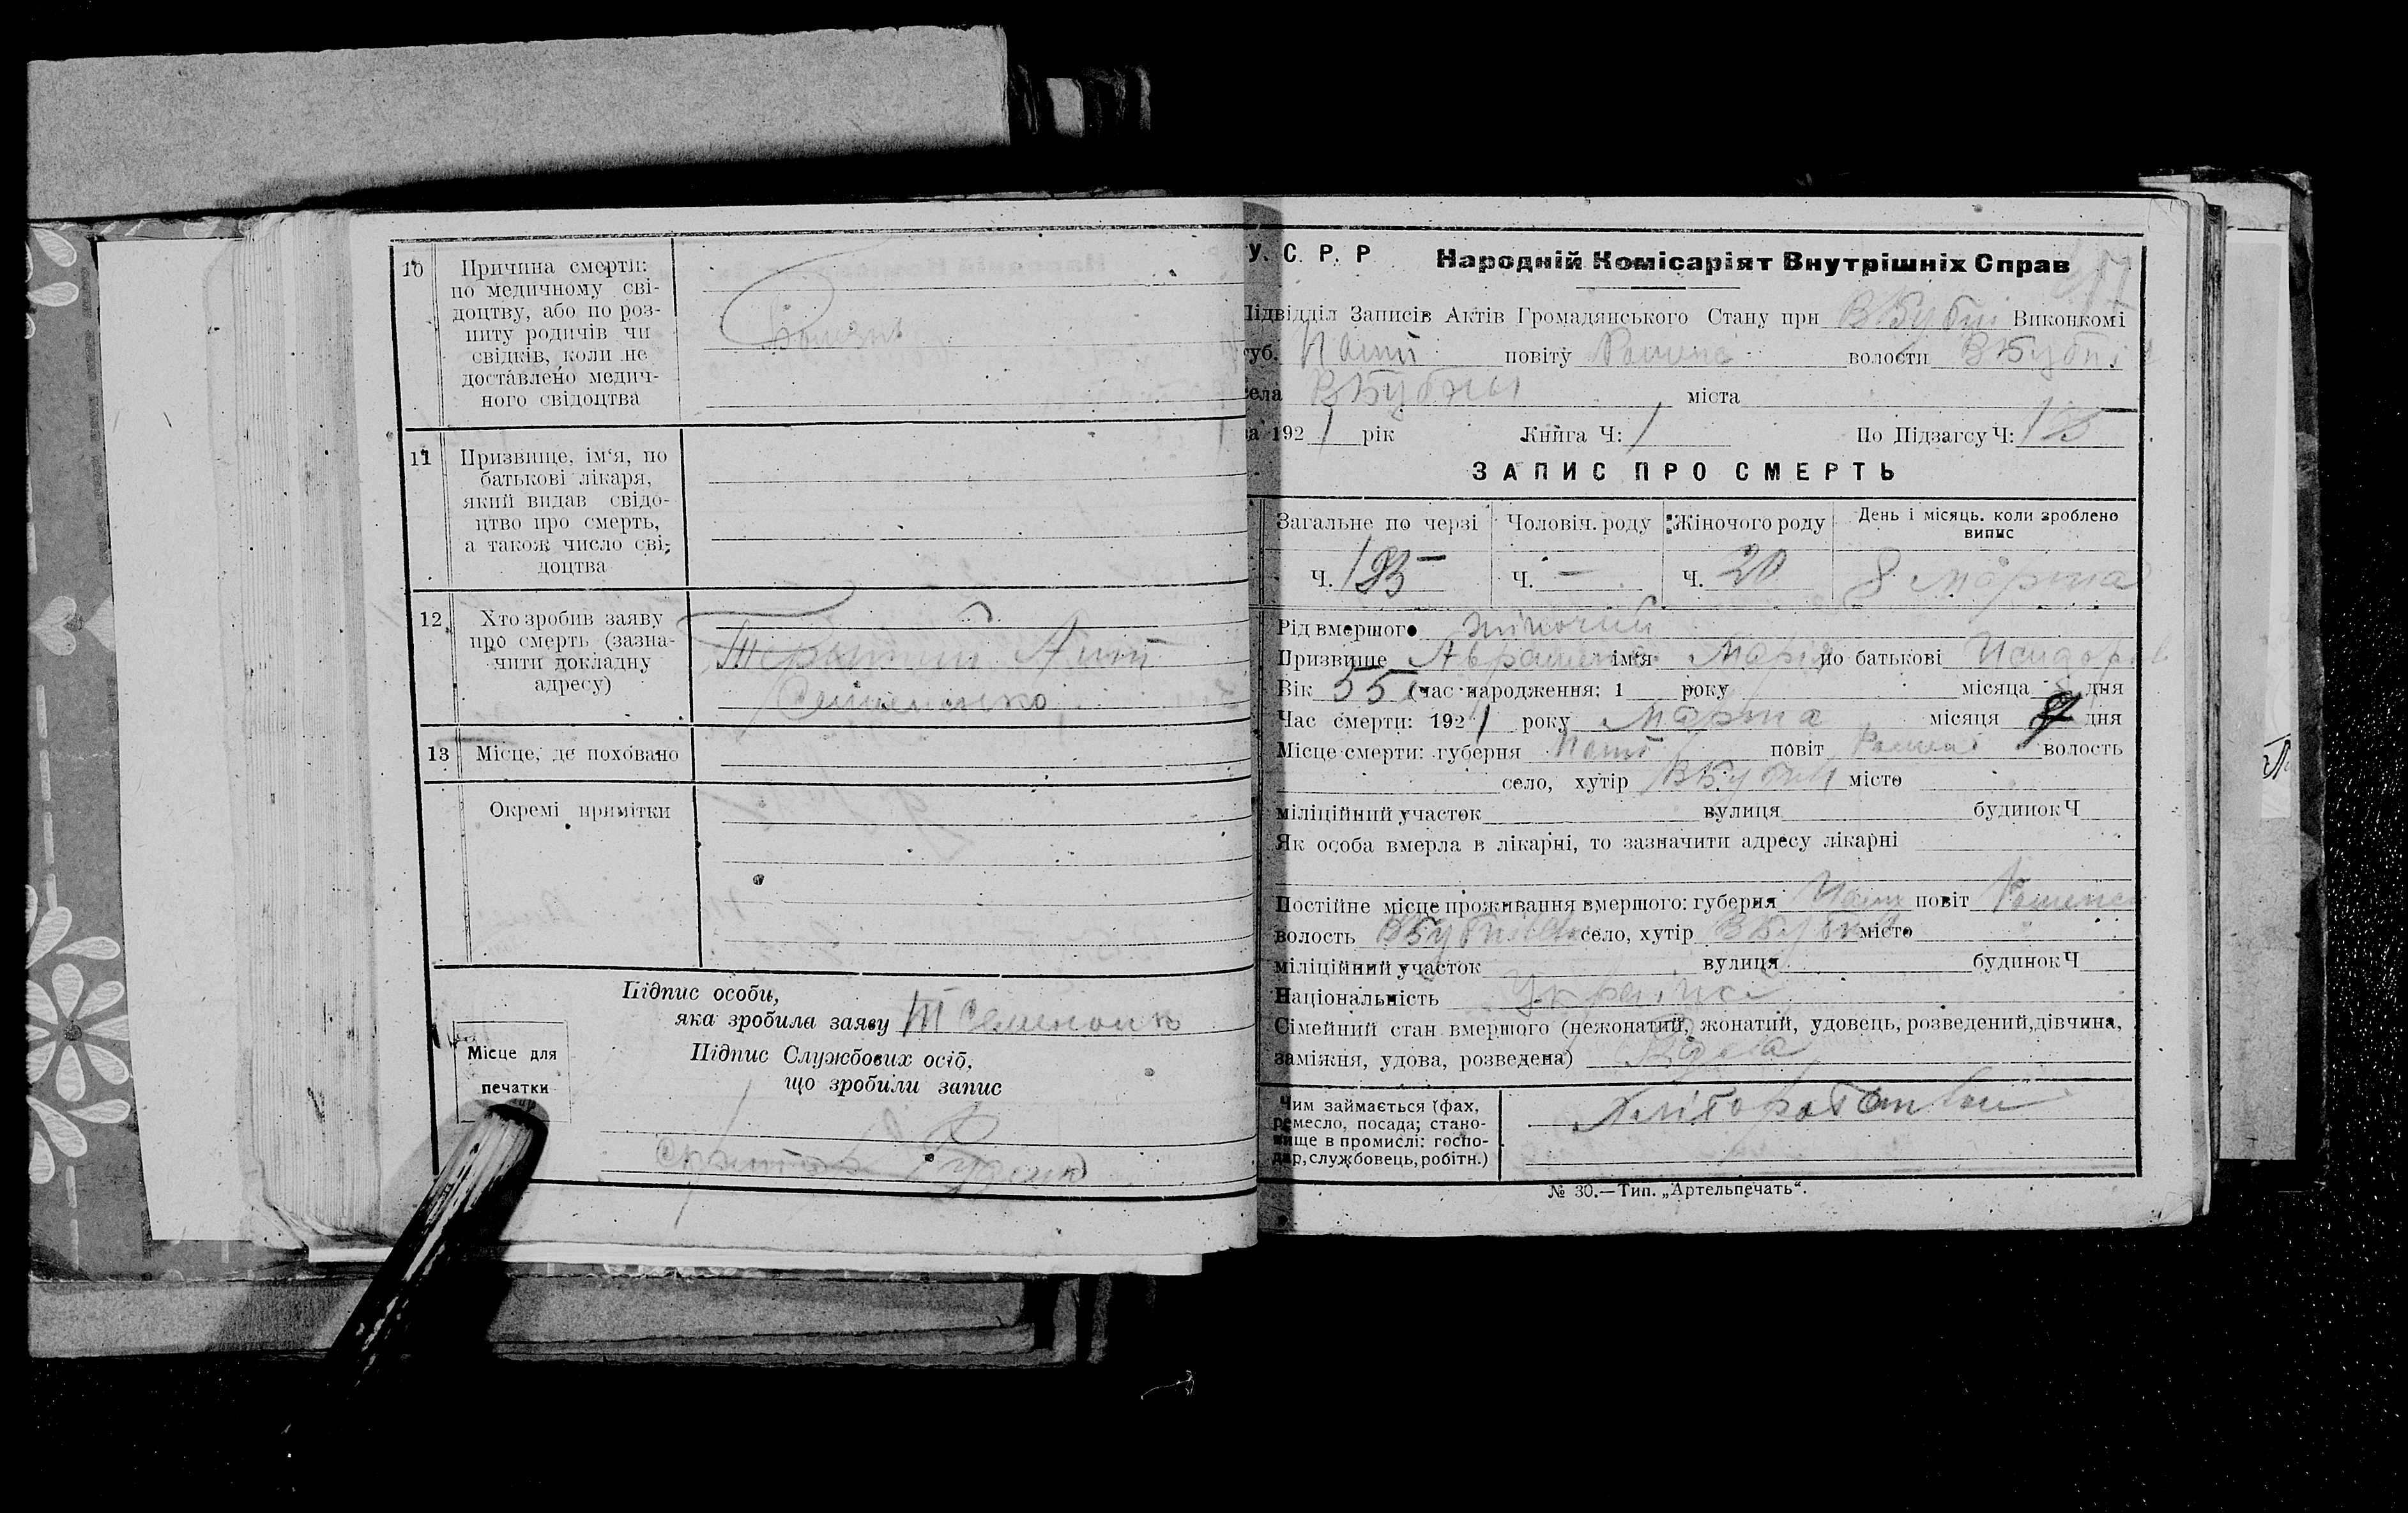 10 Причина смерти:
по медичному сві-
доцтву, або по роз-
питу родичів чи
свідків, коли не
доставлено медич-
ного свідоцтва
11 Призвище, ім'я, по
батькові лікаря,
який видав свідо-
цтво про смерть,
а також число сві-
доцтва
12 Хто зробив заяву
про смерть (зазна-
чити докладну
адресу)
Семененко
13 Місце, де поховано
Окремі примітки
Підпис особи,
яка зробила заяву
Місце для
печатки
Підпис Службових осіб,
що зробили запис
У. С. Р. Р Народній Комісаріят Внутрішніх Справ
Підвідділ Записів Актів Громадянського Стану при В Бубні Виконкомі
губ. повіту волости В Бубні
села В Бубны міста
за 192 1 рік Книга Ч: 1 По Підзагсу Ч:
ЗАПИС ПРО СМЕРТЬ
Загальне по черзі Чоловіч. роду Жіночого роду День і місяць, коли зроблено
випис
Ч. Ч. — Ч. 20 8 Марта
Рід вмершого жіночий
Призвище Авраменко ім'я Марія по батькові
Вік 55 (час народження: 1 року місяца дня
Час смерти: 192 1 року Марта місяця дня
Місце смерти: губерня повіт волость
село, хутір В Бубни місто
міліційний участок вулиця будинок Ч
Як особа вмерла в лікарні, то зазначити адресу лікарні
Постійне місце проживання вмершого: губерня повіт
волость село, хутір місто
міліційний участок вулиця будинок Ч
Національність
Сімейний стан вмершого (нежонатий, жонатий, удовець, розведений, дівчина,
заміжня, удова, розведена)
Чим займається (фах,
ремесло, посада; стано-
вище в промислі: госпо-
дар, службовець, робітн.)
№ 30.—Тип. „Артельпечать“.